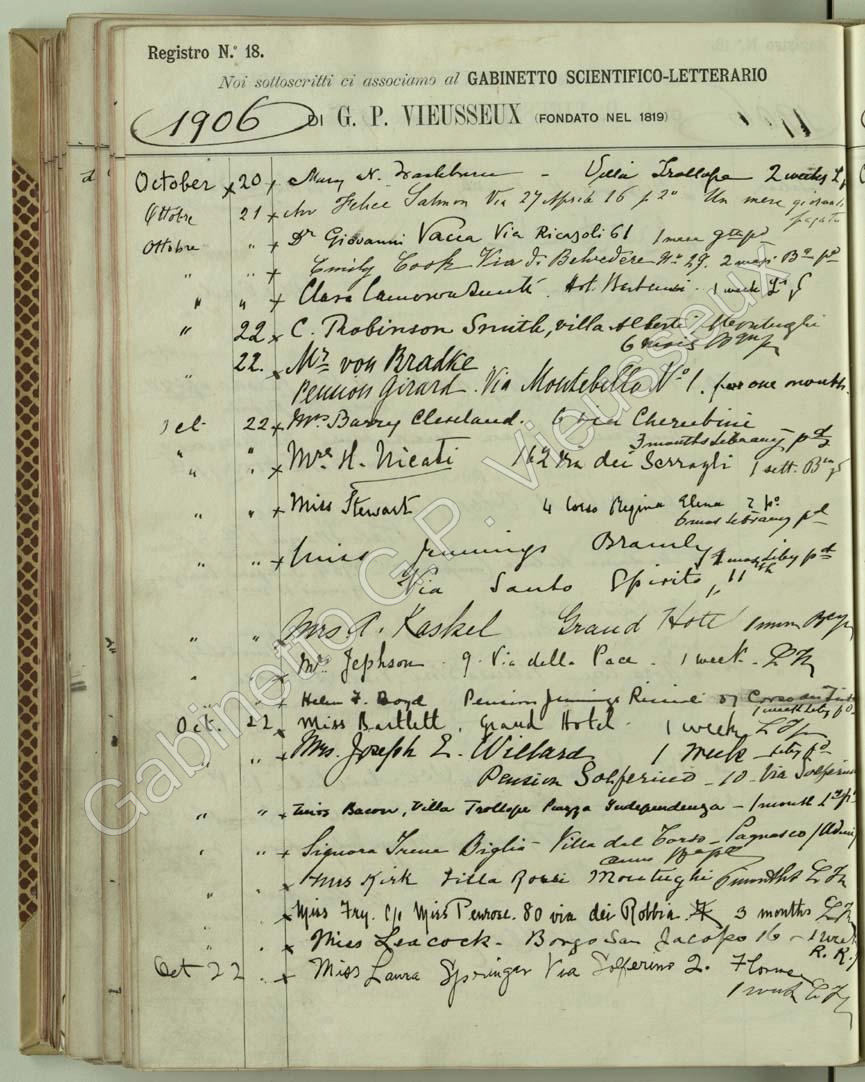 Registro N.° 18.
Noi sottoscritti ci associamo al GABINETTO SCIENTIFICO-LETTERARIO
1906 DI G. P. VIEUSSEUX (FONDATO NEL 1819)
October 20 Mary N. Washburn - Villa Trollope 2 weeks
Ottobre 21 Felice Salmon Via 27 Aprile 16 p 2° Un mese giornali
pagato
Ottobre " Dr Giovanni Vacca Via Ricasoli 61 1 mese
" " Emily Cook Via di Belvedere No 29. 2 mesi
" " Clara Hot. 1 week
" 22 C. Robinson Smith, villa Alberti, Montughi
6 mois
" 22. Mr von Bradke
Pension Girard. Via Montebello No 1. for one month.
Oct. 22 Mrs Barry Cleveland. 6 via Cherubini
3 months Library pd
" " Mrs H. Nicati 162 Via dei Serragli 1 sett.
" " Miss Stewart 4 Corso Regina Elena 2 po
6 mos Library pd
" " Miss Jennings Bramly
Via Santo Spirito, 11
" " Mrs A. Kaskel Grand Hotel
" Mrs Jephson. 9. Via della Pace. 1 week.
" Helen F. Boyd Pension Jennings Riccioli 37 Corso dei Tintori
1 week
Oct. 22 Miss Bartlett, Grand Hotel. 1 week
" " Mrs. Joseph E. Willard 1 week
Pension Solferino - 10 - Via Solferino
" " Miss Bacon, Villa Trollope Piazza Independenza - 1 month
" Signora Irene Biglia - Villa del Torso - Pagnacco (Udine)
anno
" Miss Kirk Villa Rossi Montughi
" Miss Fry. c/o Miss Penrose. 80 via dei Robbia. 3 months
" Miss Leacock - Borgo San Jacopo 16 - 1 week
R. R.
Oct 22 Miss Laura Springer Via Solferino 2. Florence
1 week
Gabinetto G.P. Vieusseux